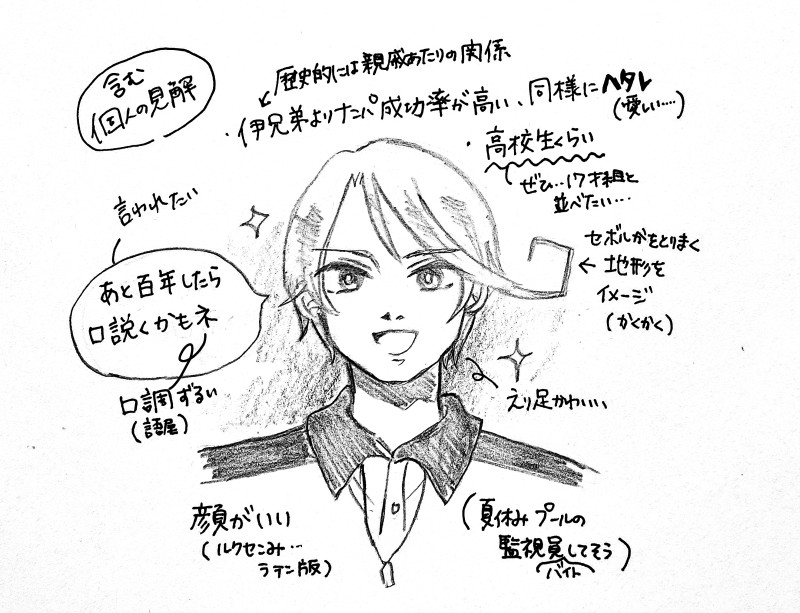 含む
個人の見解
歴史的には親戚あたりの関係
・伊兄弟よりナンパ成功率が高い、同様にヘタレ
(愛しい…)
・高校生くらい
ぜひ…17才組と
並べたい…
言われたい
あと百年したら
口説くかもネ
口調ずるい
(語尾)
セボルガをとりまく
← 地形を
イメージ
(かくかく)
えり足かわいい
顔がいい
(ルクセこみ…
ラテン版)
(夏休みプールの
監視員してそう)
バイト